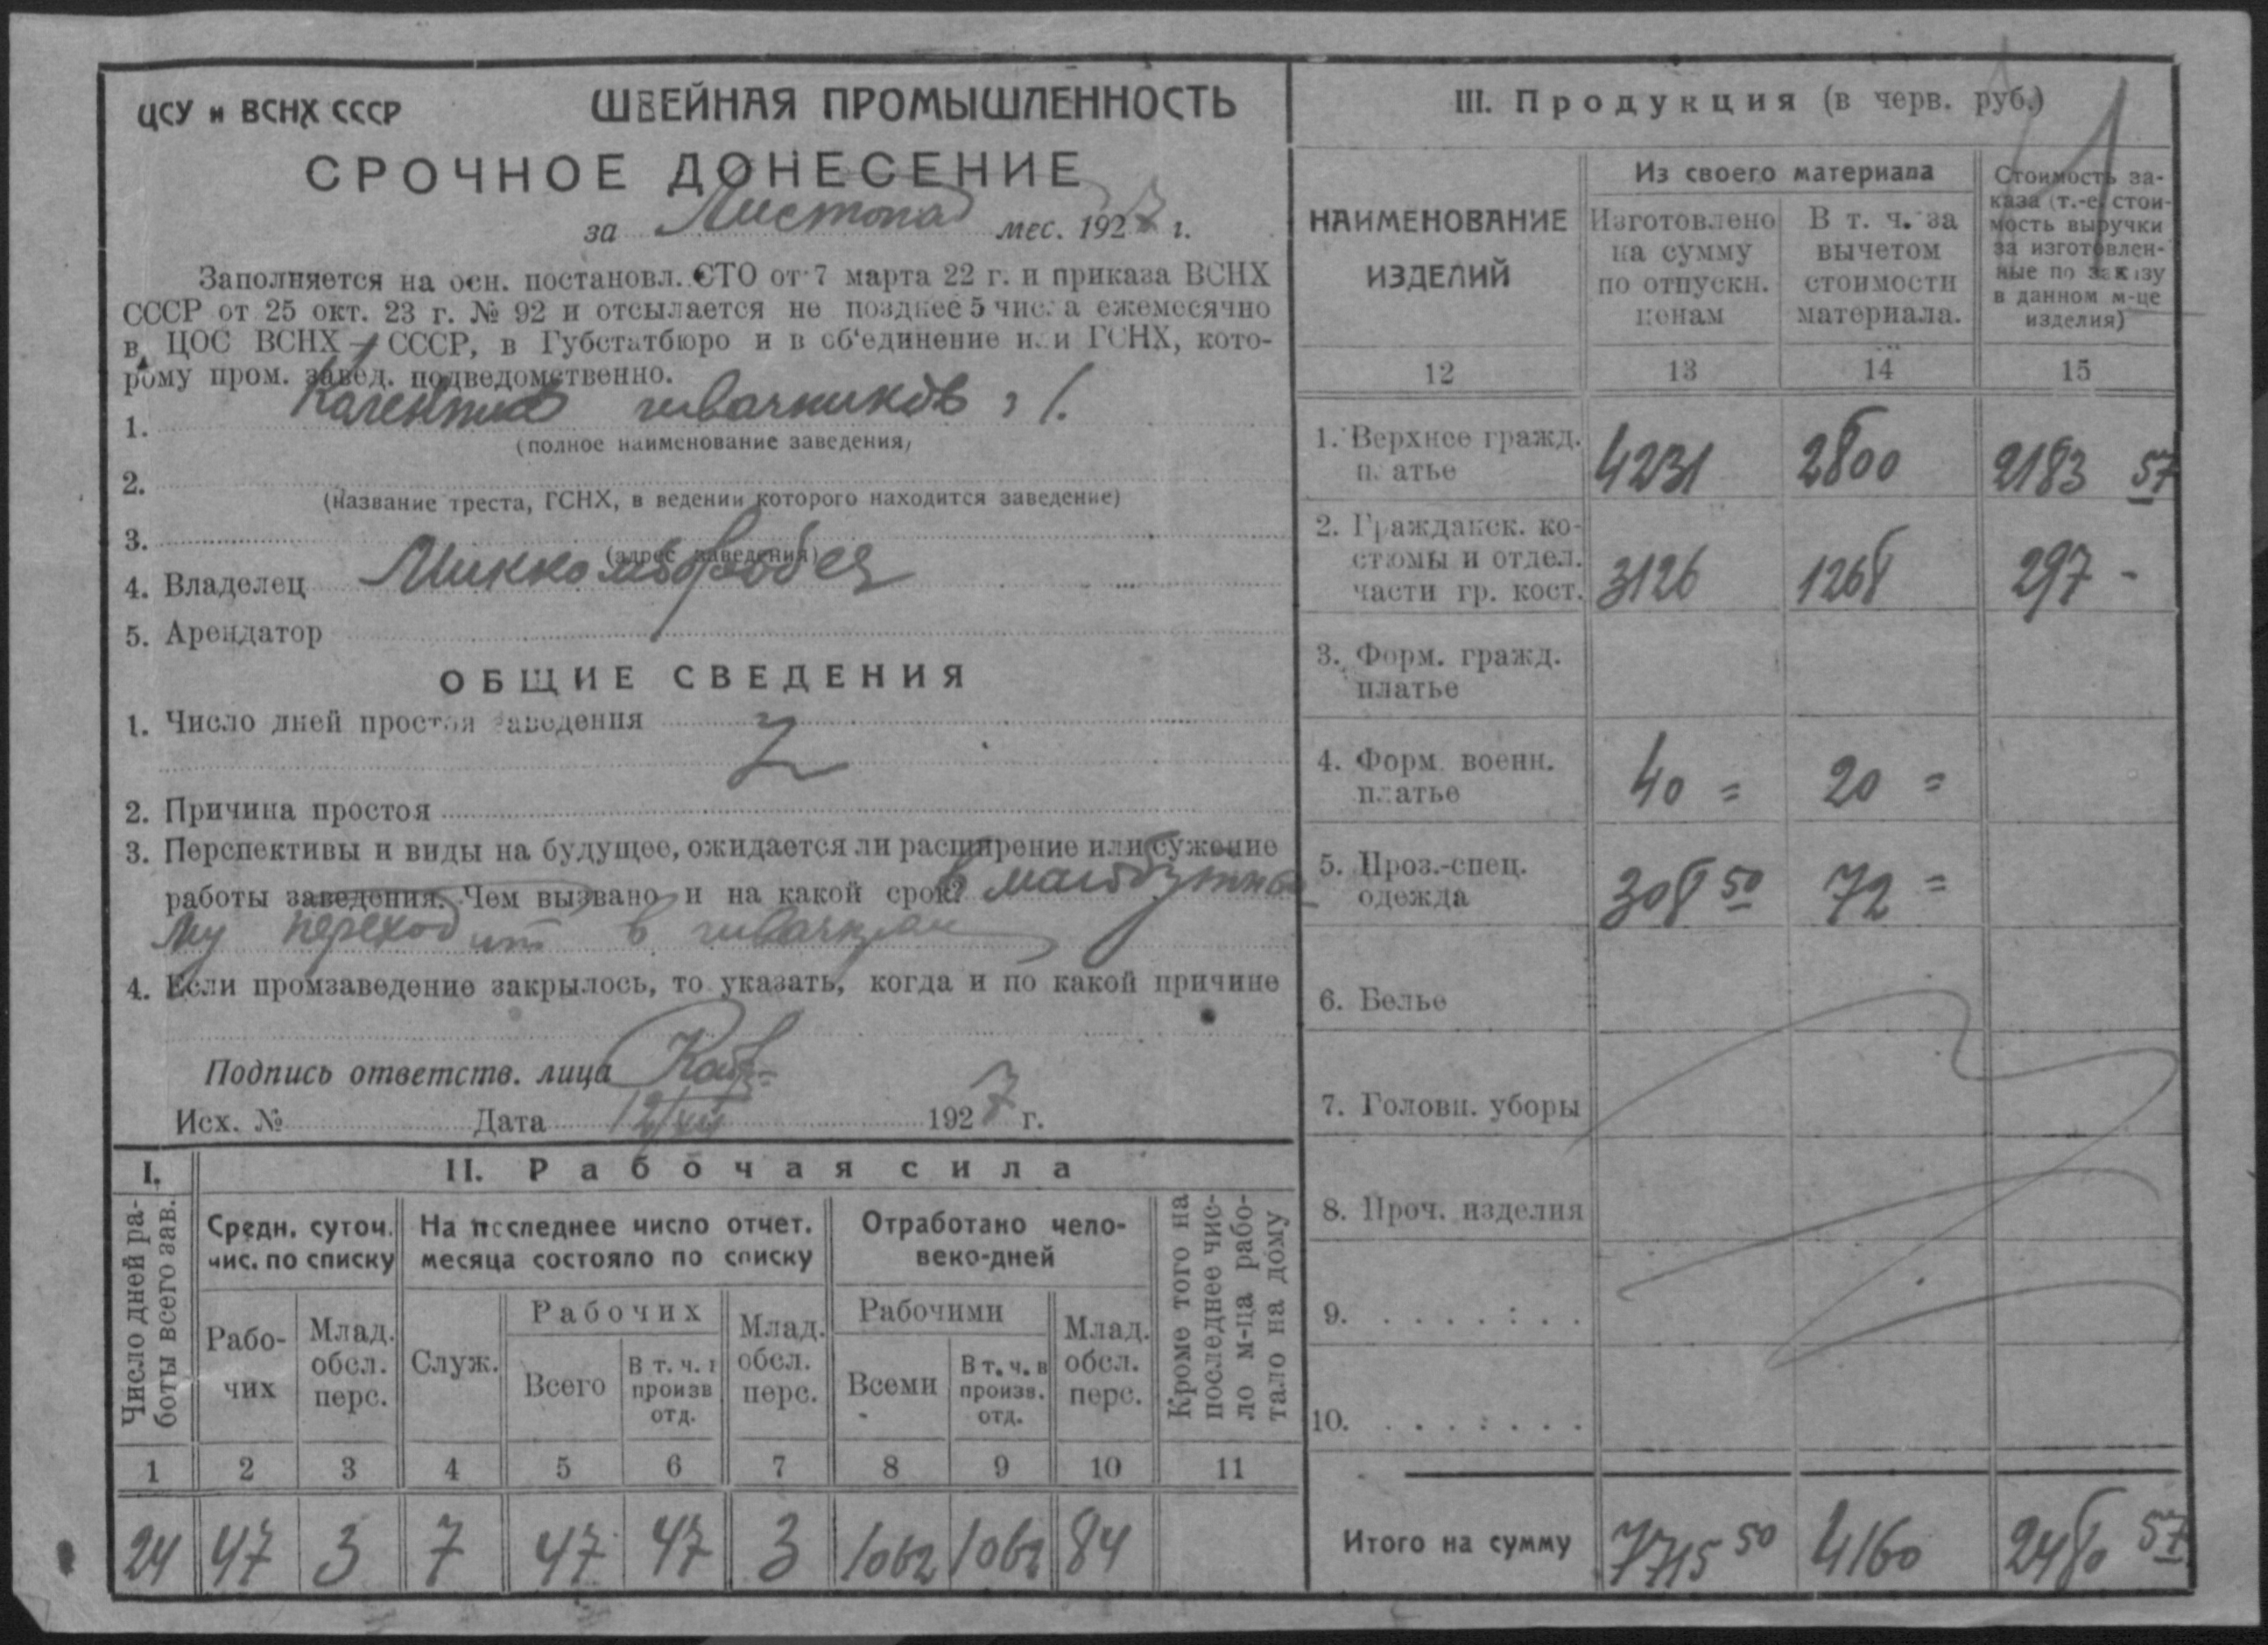 ЦСУ и ВСНХ СССР
ШВЕЙНАЯ ПРОМЫШЛЕННОСТЬ
СРОЧНОЕ ДОНЕСЕНИЕ
за Листопад мес. 1927 г.
Заполняется на осн. постановл. СТО от 7 марта 22 г. и приказа ВСНХ
СССР от 25 окт. 23 г. № 92 и отсылается не позднее 5 числа ежемесячно
в ЦОС ВСНХ СССР, в Губстатбюро и в об'единение или ГСНХ, кото-
рому пром. завед. подведомственно.
1. швачников
(полное наименование заведения)
2.
(название треста, ГСНХ, в ведении которого находится заведение)
3.
(адрес заведения)
4. Владелец
5. Арендатор
ОБЩИЕ СВЕДЕНИЯ
1. Число дней простоя заведения
2. Причина простоя
3. Перспективы и виды на будущее, ожидается ли расширение или сужение
работы заведения. Чем вызвано и на какой срок? в майбутньо
му переходит в
4. Если промзаведение закрылось, то указать, когда и по какой причине
Подпись ответств. лица
Исх. № Дата 12/XII 1927 г.
I. II. Рабочая сила
Число дней ра-
боты всего зав.
Средн. суточ.
чис. по списку
На последнее число отчет.
месяца состояло по списку
Отработано чело-
веко-дней
Кроме того на
последнее чис-
ло м-ца рабо-
тало на дому
Рабо-
чих
Млад.
обсл.
перс.
Служ.
Рабочих
Всего
В т. ч. в
произв
отд.
Млад.
обсл.
перс.
Рабочими
Всеми
В т. ч. в
произв.
отд.
Млад.
обсл.
перс.
1 2 3 4 5 6 7 8 9 10 11
24 47 3 7 47 47 3 1062 1062 84
III. Продукция (в черв. руб.)
НАИМЕНОВАНИЕ
ИЗДЕЛИЙ
Из своего материала
Изготовлено
на сумму
по отпускн.
ценам
В т. ч. за
вычетом
стоимости
материала.
Стоимость за-
каза (т.-е. стои-
мость выручки
за изготовлен-
ные по заказу
в данном м-це
изделия)
12 13 14 15
1. Верхнее гражд.
платье 4231 2800 2183 57
2. Гражданск. ко-
стюмы и отдел.
части гр. кост. 3126 1268 297 -
3. Форм. гражд.
платье
4. Форм. военн.
платье 40 = 20 =
5. Проз.-спец.
одежда 308 50 72 =
6. Белье
7. Головн. уборы
8. Проч. изделия
9. . . . . . : . .
10. . . . . : . . .
Итого на сумму 7715 50 4160 2480 57